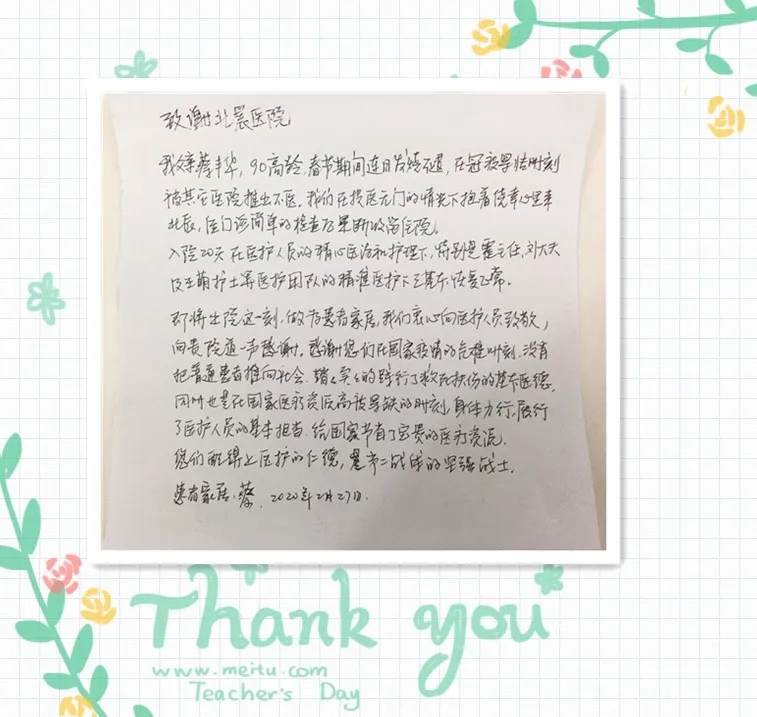 致谢北晨医院
我父亲蔡丰华，90高龄，春节期间连日发烧不退，在冠疫暴发时刻
被其它医院推出不医。我们在投医无门的情况下抱着侥幸心里来
北辰，经门诊简单的检查后果断收留住院。
入院20天在医护人员的精心医治和护理下，特别是霍主任，刘大夫
及王萌护士等医护团队的精准医护下已基本恢复正常。
即将出院这一刻，做为患者家居，我们衷心向医护人员致敬，
向贵院道一声感谢。感谢您们在国家疫情的危难时刻，没有
把普通患者推向社会，踏踏实实的践行了救死扶伤的基本医德，
同时也是在国家医疗资源高被导缺的时刻，身体力行，履行
了医护人员的基本担当，给国家节省了宝贵的医疗资源。
您们配得上医护的仁德，是第二战线的坚强战士。
患者家居：蔡，2020年2月27日.
Thank you
www.meitu.com
Teacher's Day